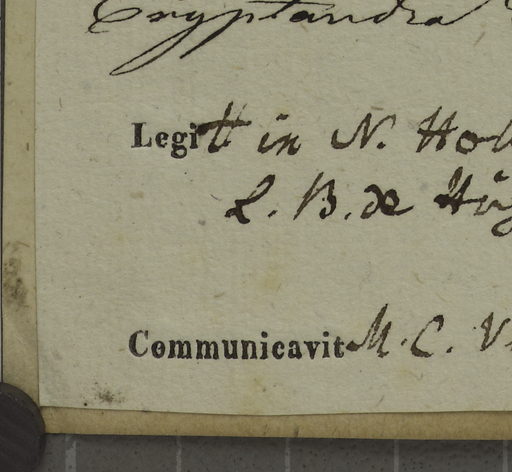 Cryptandra
Legitt in N. Holl
L. B. de Hüg
Communicavit M. C. V